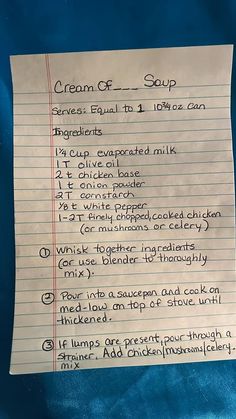 Cream Of___ Soup
Serves: Equal to 1 10¾ oz can
Ingredients
1¼ cup evaporated milk
1 T olive oil
2 t chicken base
1 t onion powder
2 T cornstarch
⅛ t white pepper
1-2 T finely chopped, cooked chicken
(or mushrooms or celery)
① Whisk together ingredients
(or use blender to thoroughly
mix).
② Pour into a saucepan and cook on
med-low on top of stove until
thickened.
③ If lumps are present, pour through a
strainer. Add chicken/mushrooms/celery-
mix